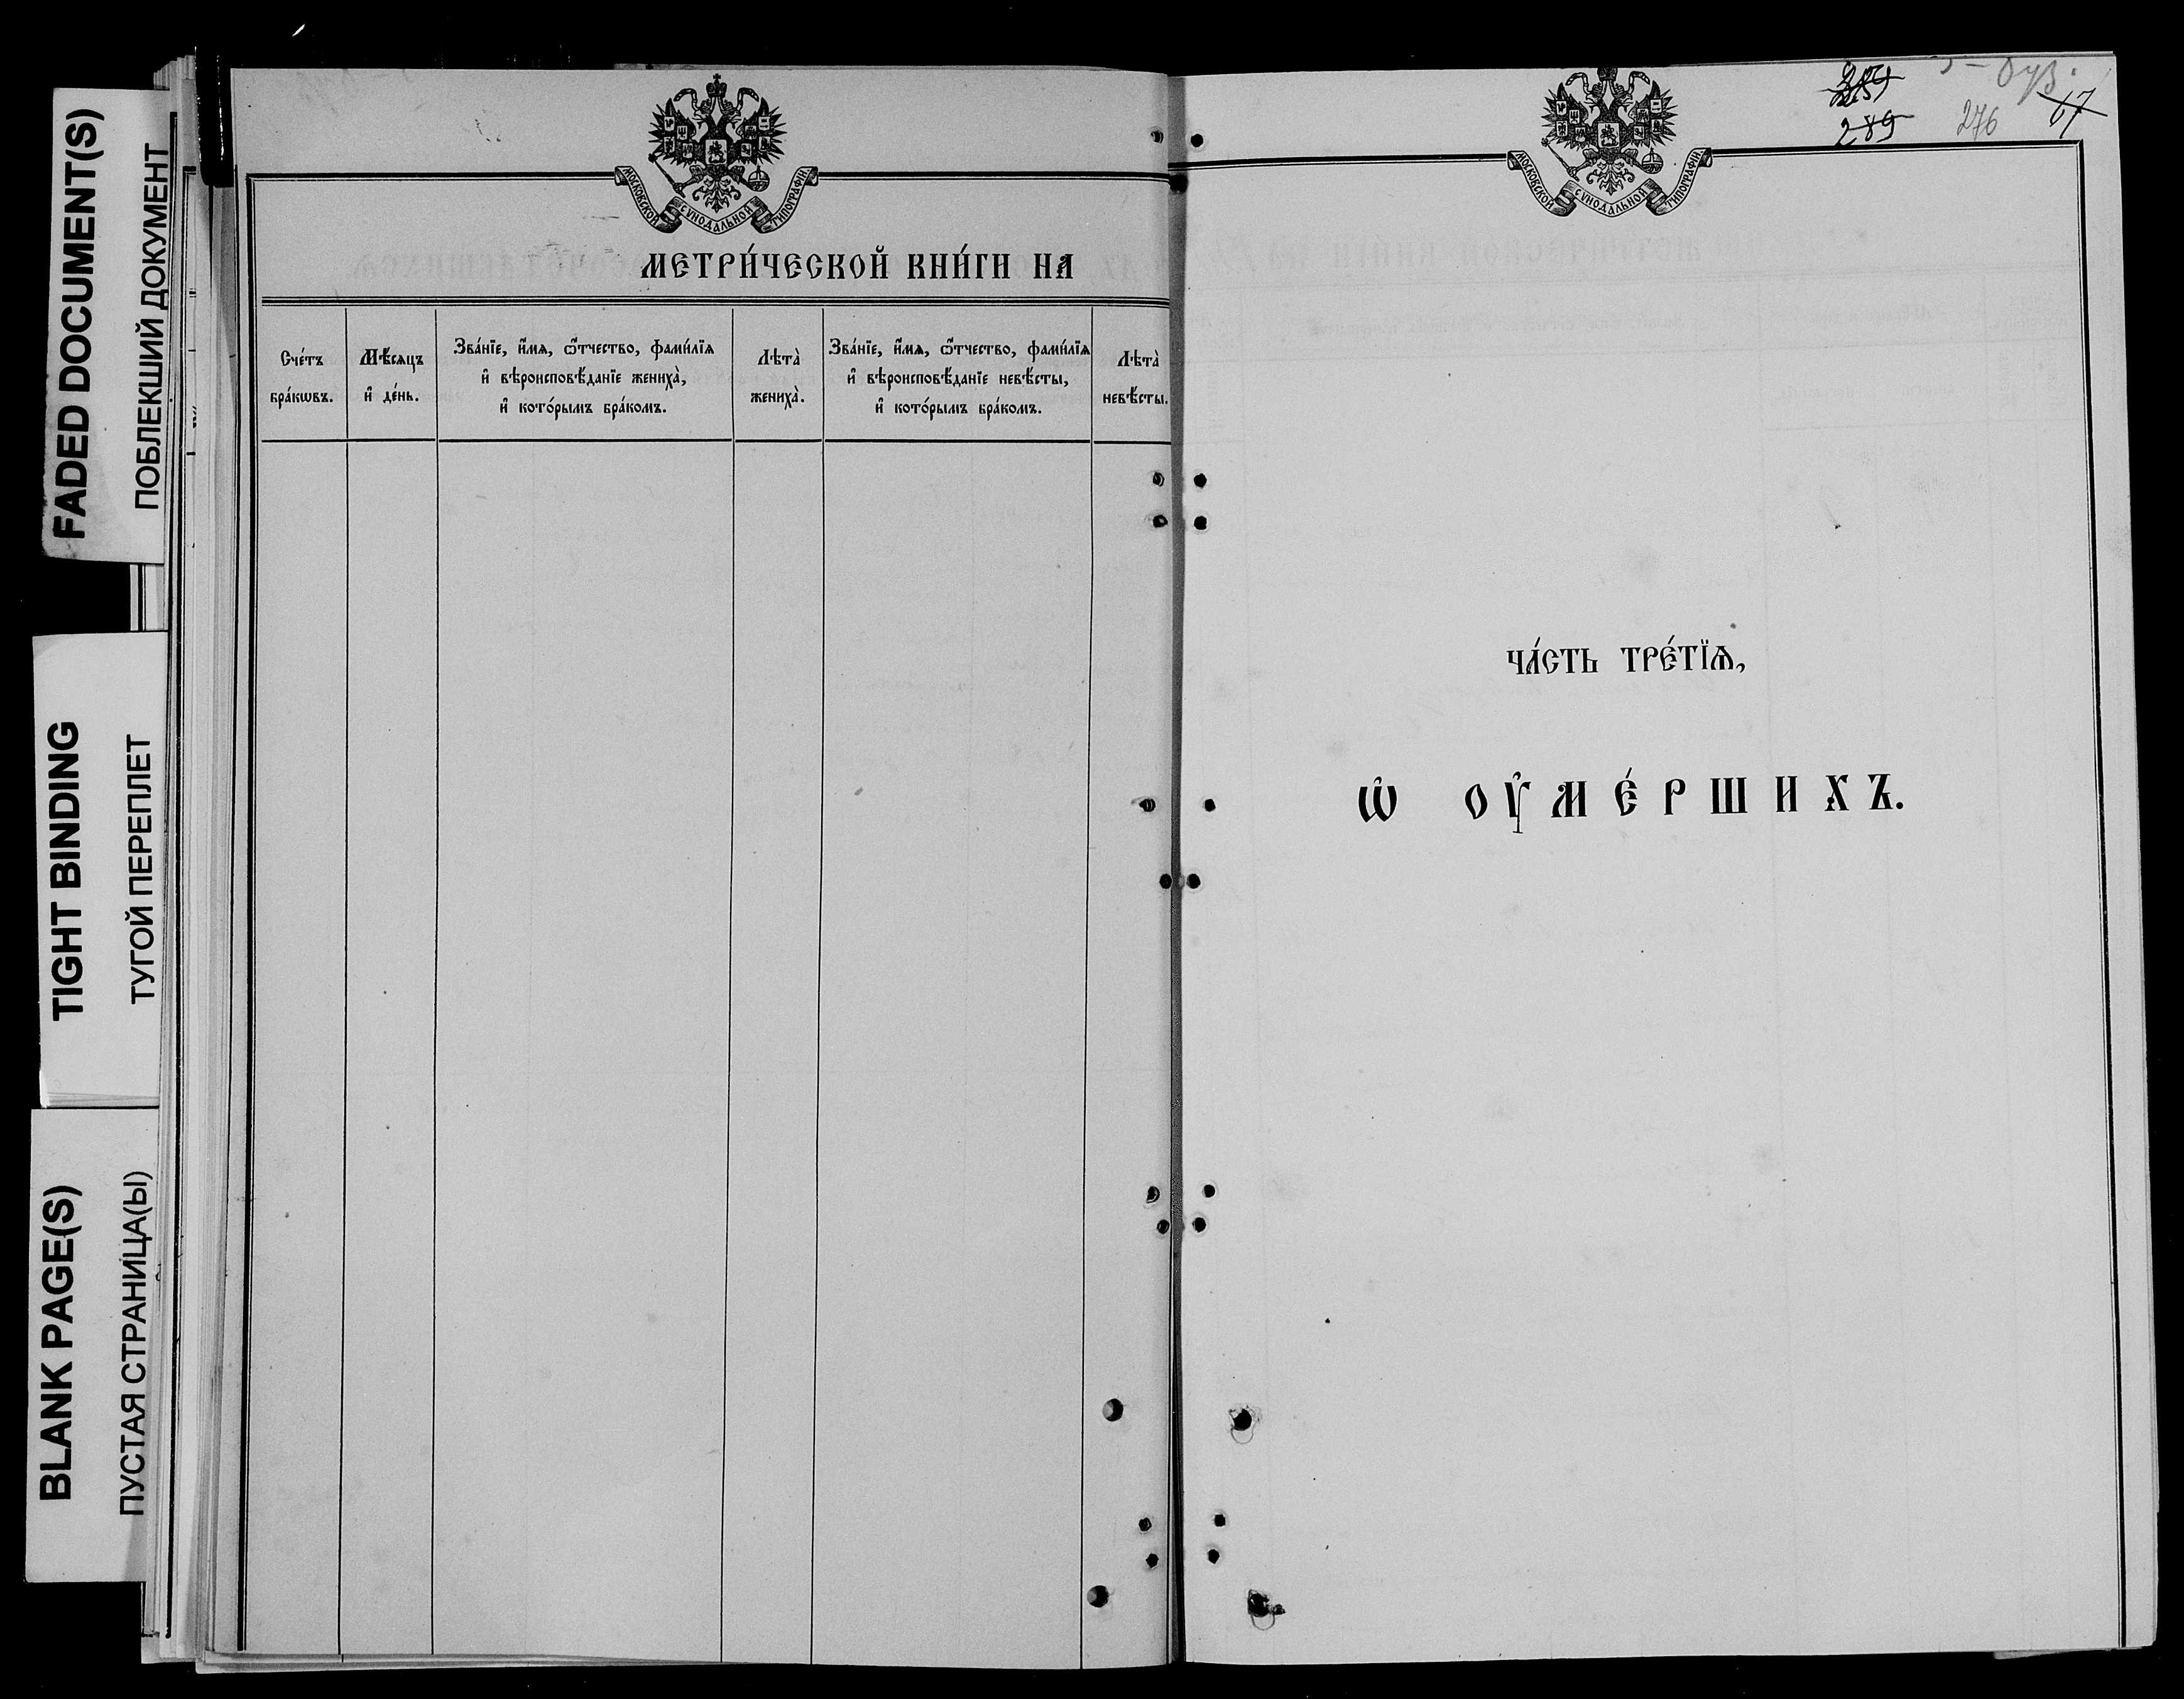 FADED DOCUMENT(S)
ПОБЛЕКШИЙ ДОКУМЕНТ
TIGHT BINDING
ТУГОЙ ПЕРЕПЛЕТ
BLANK PAGE(S)
ПУСТАЯ СТРАНИЦА(Ы)
МОСКОВСКОЙ СѴНОДАЛЬНОЙ ТИПОГРАФІИ
МЕТРИ́ЧЕСКОЙ КНИ́ГИ НА
Сче́тъ
бра́кѡвъ.
Мѣ́сяцъ
и҆ де́нь.
Зва́нїе, и҆́мѧ, ѻ҆́тчество, фами́лїѧ
и҆ вѣроисповѣ́данїе жениха̀,
и҆ кото́рымъ бра́комъ.
Лѣта̀
жениха̀.
Зва́нїе, и҆́мѧ, ѻ҆́тчество, фами́лїѧ
и҆ вѣроисповѣ́данїе невѣ́сты,
и҆ кото́рымъ бра́комъ.
Лѣта̀
невѣ́сты.
289
276
67
МОСКОВСКОЙ СѴНОДАЛЬНОЙ ТИПОГРАФІИ
ЧА́СТЬ ТРЕ́ТЇѦ,
Ѡ҆ ОУ҆МЕ́РШИХЪ.